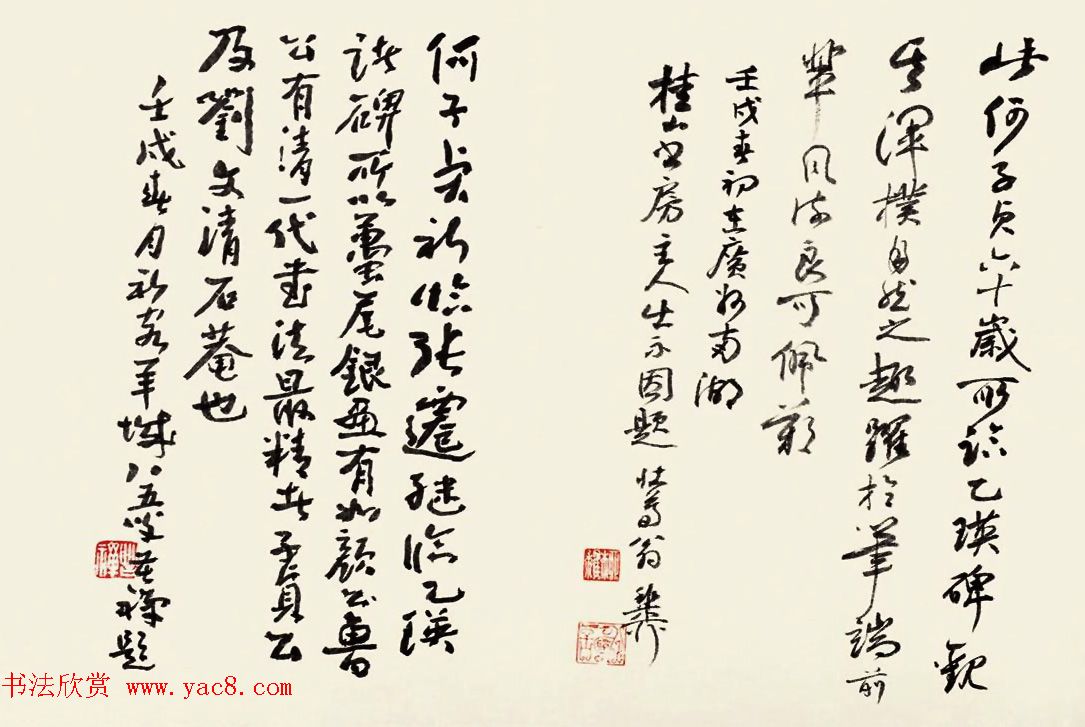 此何子貞六十歲所臨乙瑛碑觀
其渾樸自然之趣躍於筆端前
輩風流良可佩
壬戌春初在廣州南湖
桂山書房主人出示因題 壯暮翁稚柳
何子貞初臨張遷繼臨乙瑛
諸碑所以蠆尾銀畫有如顏公魯
公有清一代書法最精者子貞公
及劉文清石菴也
壬戌春月初客羊城八五叟苦禪題
书法欣赏 www.yac8.com